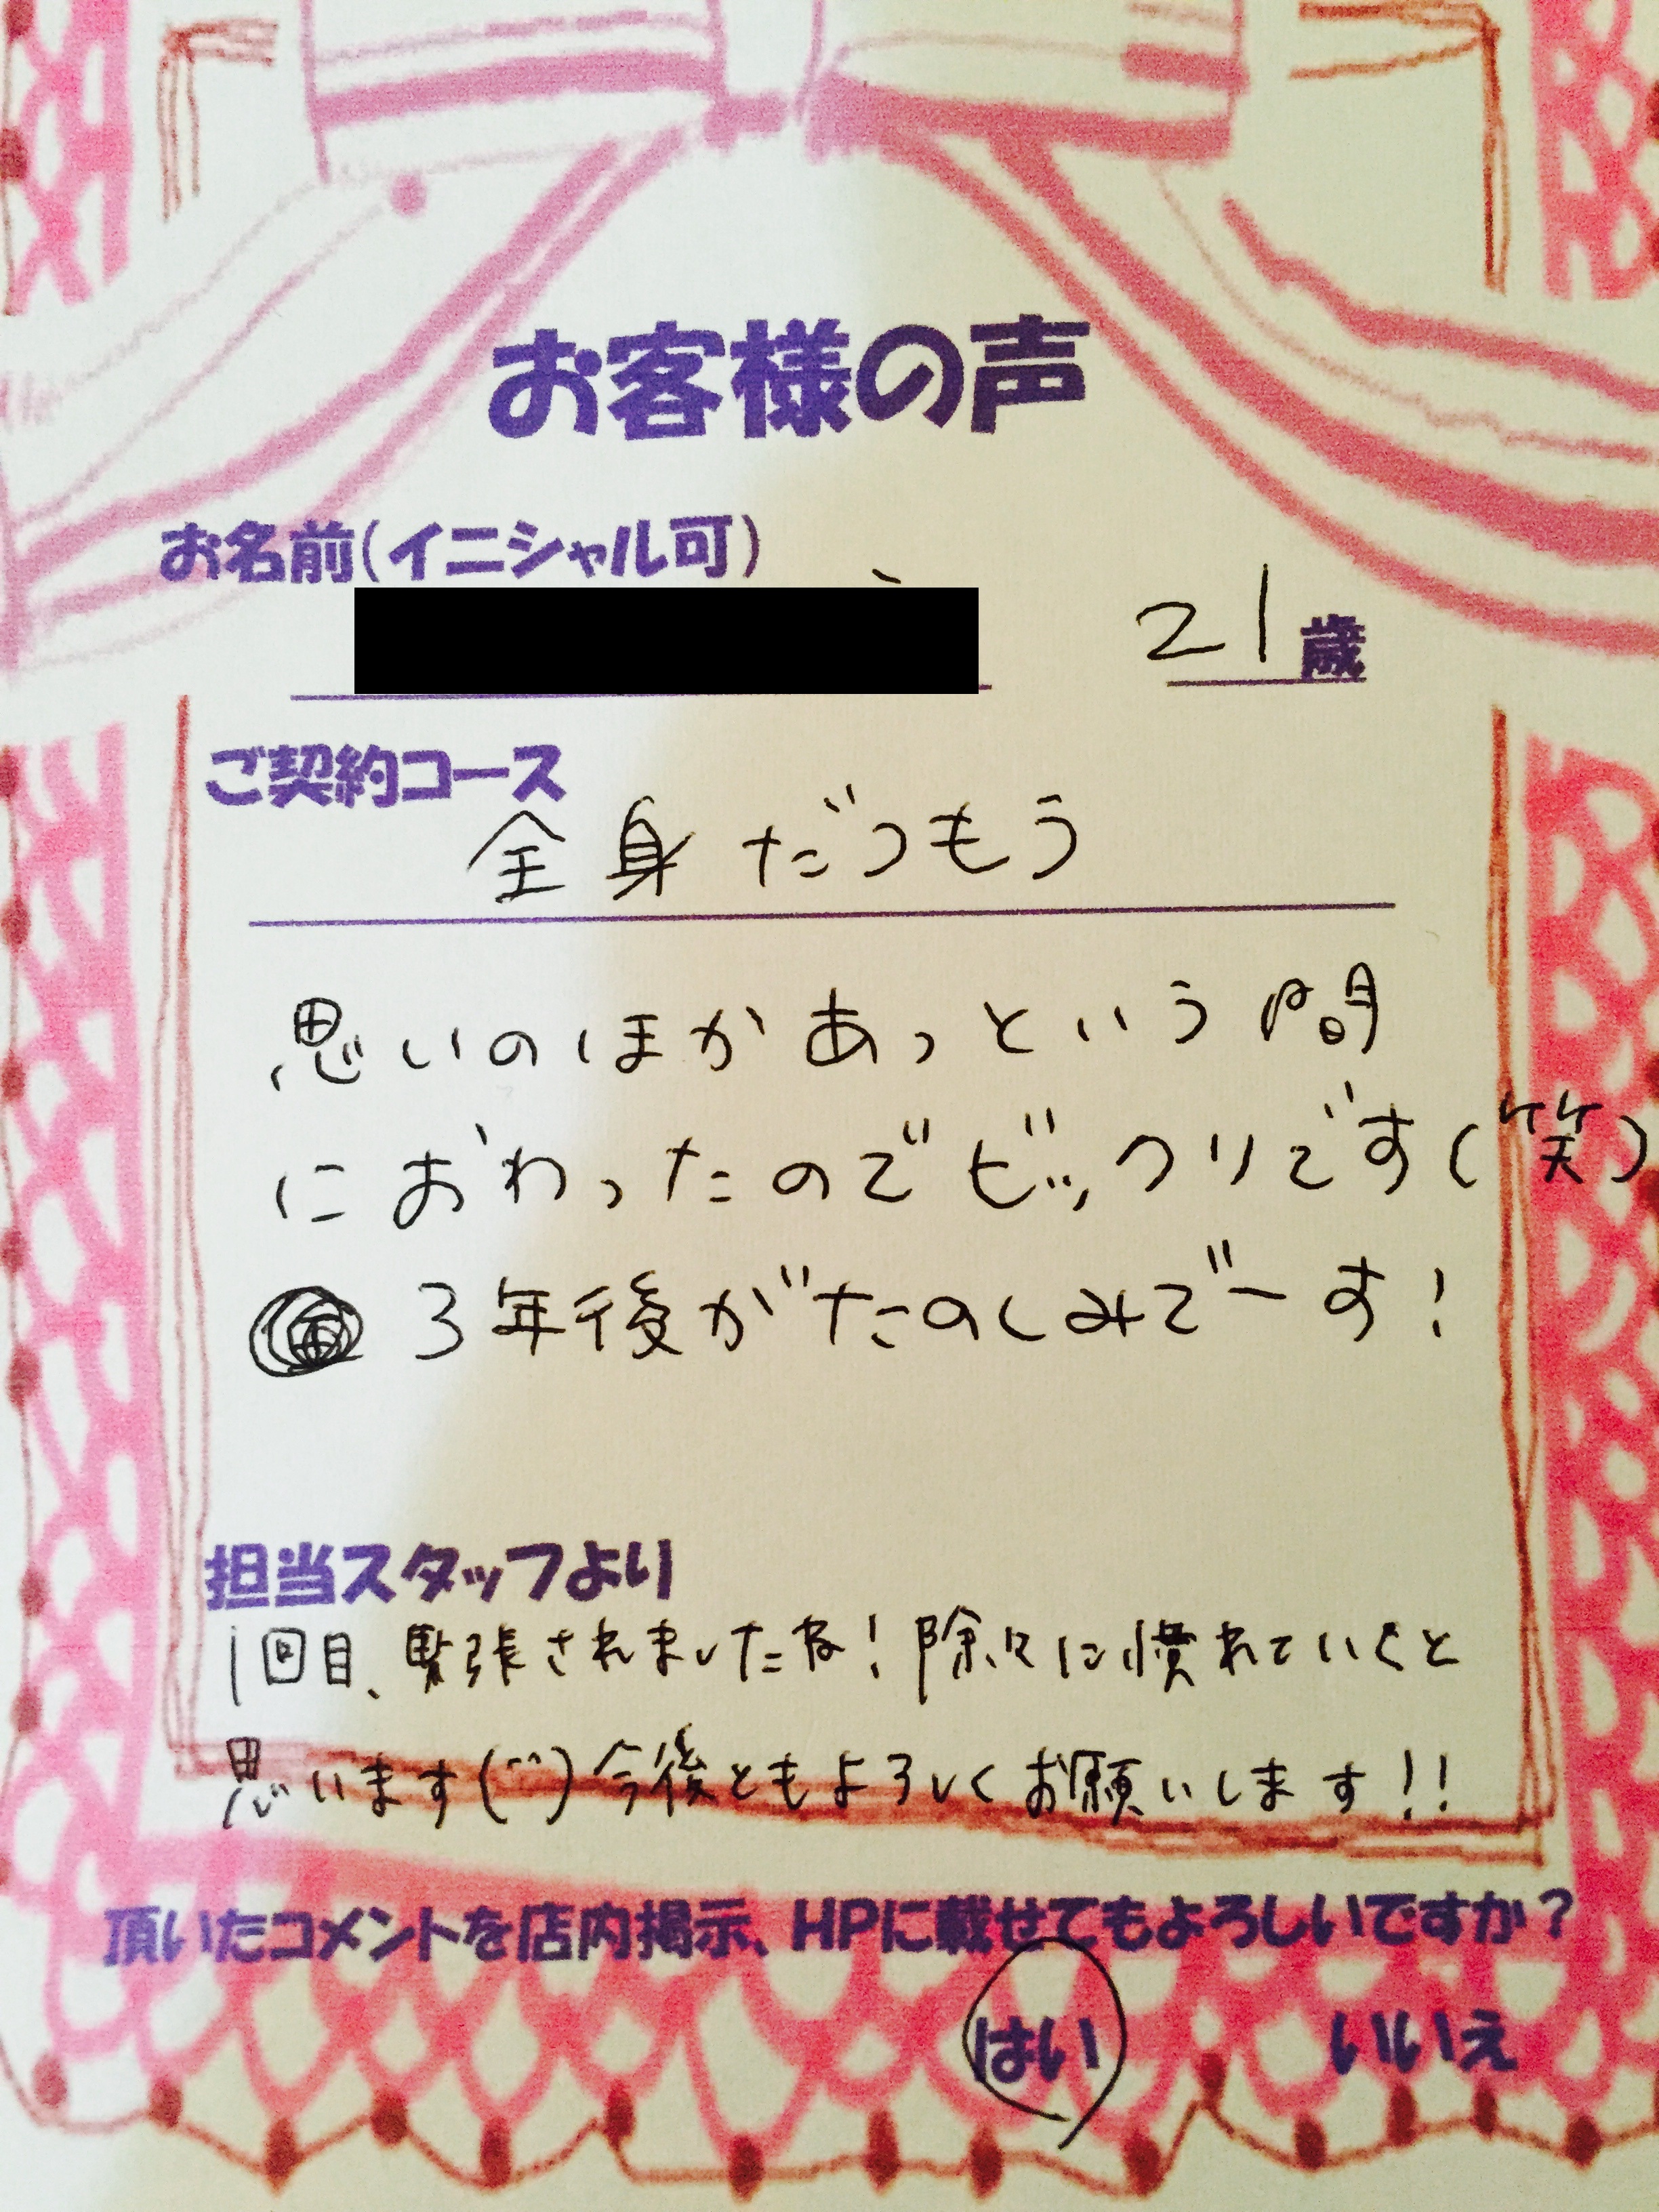 お客様の声
お名前(イニシャル可)
21歳
ご契約コース
全身だつもう
思いのほかあっという間
におわったのでビックリです(笑)
3年後がたのしみでーす!
担当スタッフより
1回目、緊張されましたね!除々に慣れていくと
思います(^^)今後ともよろしくお願いします!!
頂いたコメントを店内掲示、HPに載せてもよろしいですか?
はい いいえ